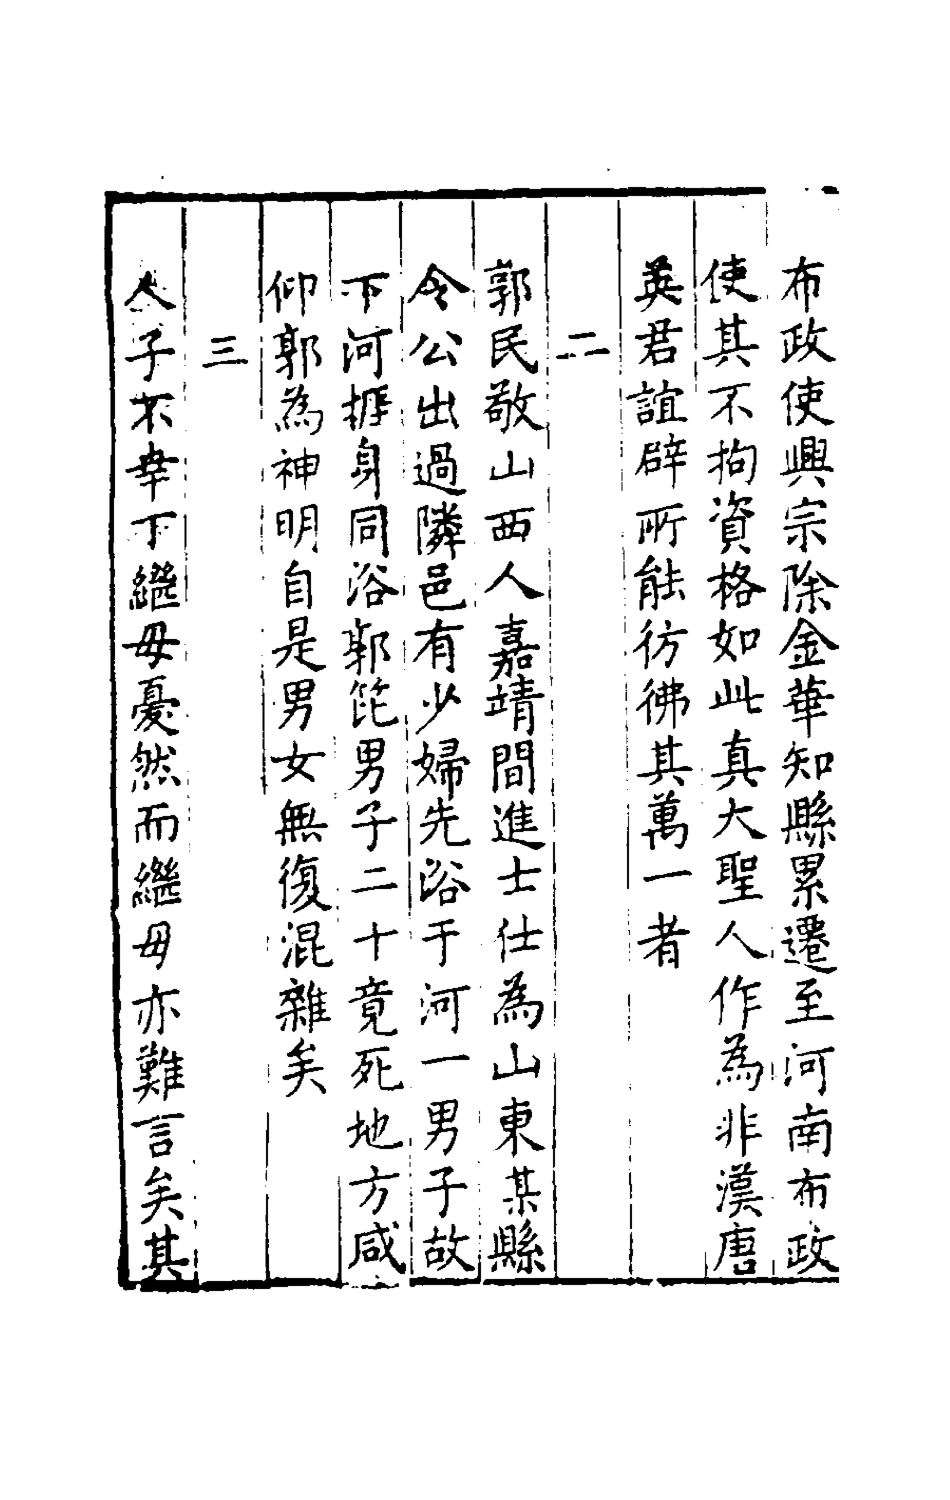 布政使興宗除金華知縣累遷至河南布政
使其不拘資格如此真大聖人作為非漢唐
英君誼辟所能彷彿其萬一者
二
郭民敬山西人嘉靖間進士仕為山東某縣
令公出過隣邑有少婦先浴于河一男子故
下河捱身同浴郭笓男子二十竟死地方咸
仰郭為神明自是男女無復混雜矣
三
人子不幸下繼母憂然而繼母亦難言矣其